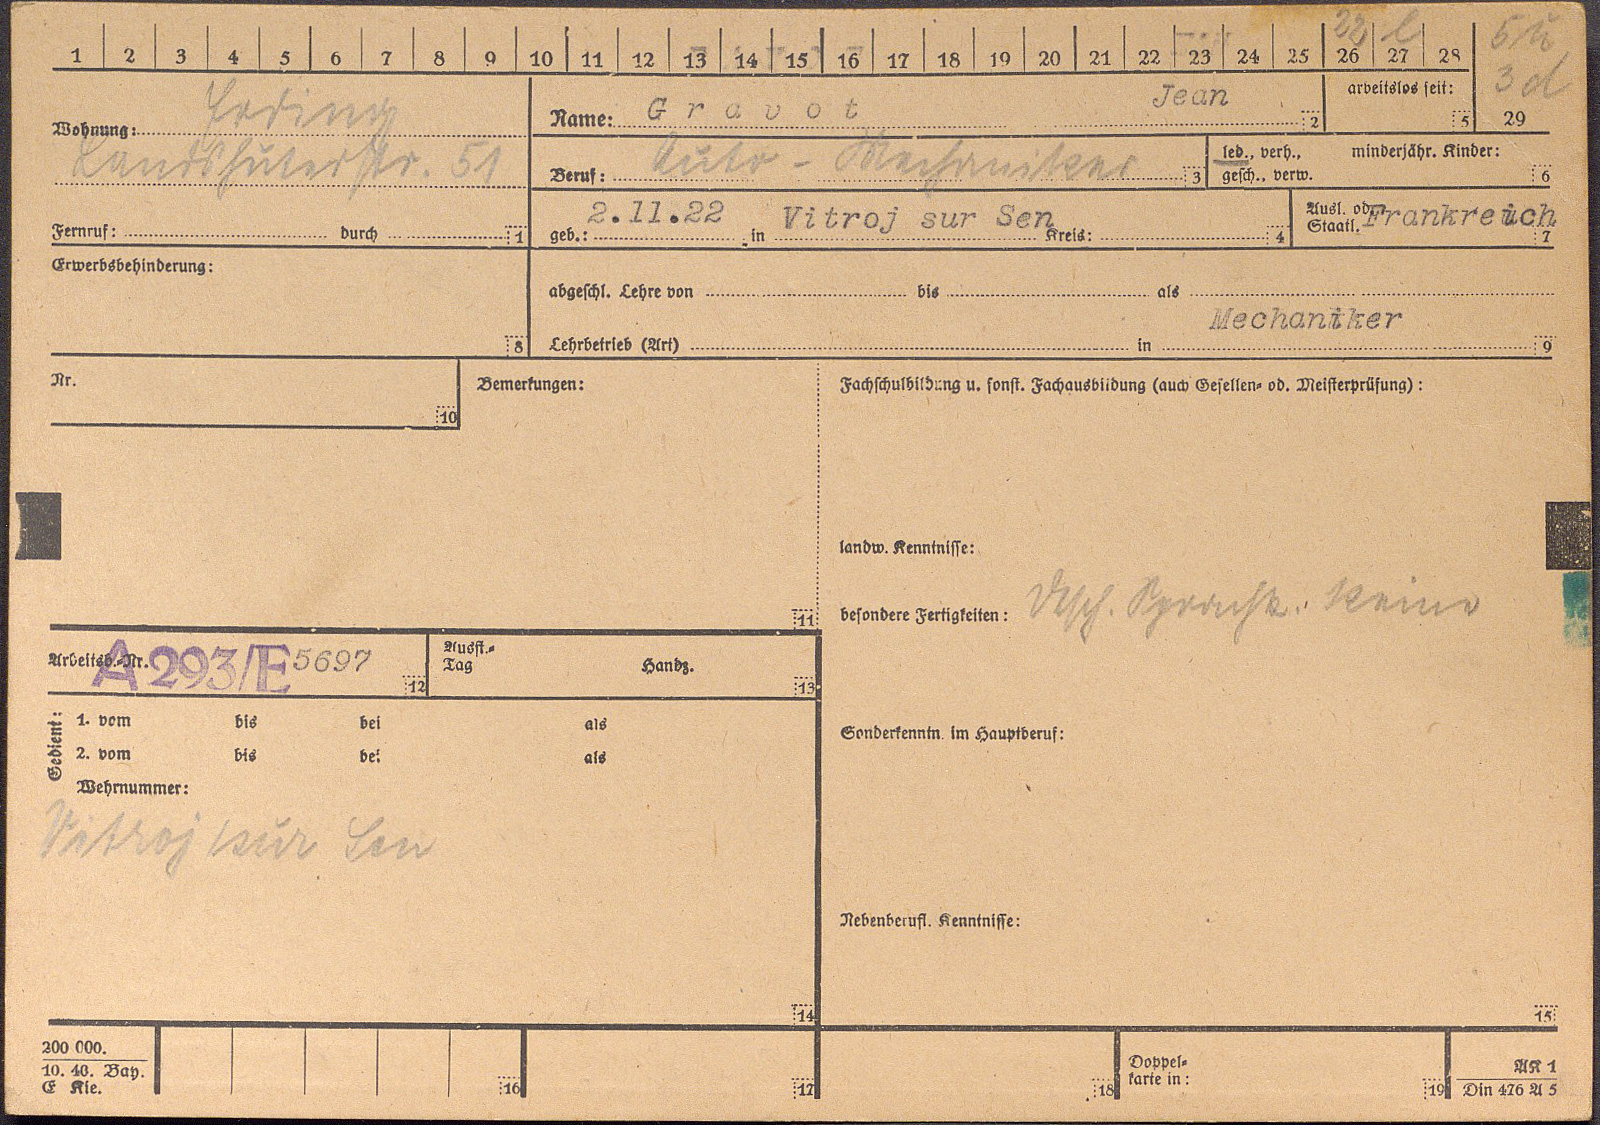 1 2 3 4 5 6 7 8 9 10 11 12 13 14 15 16 17 18 19 20 21 22 23 24 25 26 27 28
22 l
5 ü
3 d
29
Wohnung: Erding
Landshuterstr. 51
Fernruf: durch 1
Name: Gravot Jean 2
arbeitslos seit: 5
Beruf: Auto - Mechaniker 3
led., verh., gesch., verw.
minderjähr. Kinder: 6
geb.: 2.11.22 in Vitroj sur Sen Kreis: 4
Ausl. od. Staatl. Frankreich 7
Erwerbsbehinderung: 8
abgeschl. Lehre von bis als
Mechaniker
Lehrbetrieb (Art) in 9
Nr. 10
Bemerkungen: 11
Fachschulbildung u. sonst. Fachausbildung (auch Gesellen- od. Meisterprüfung):
landw. Kenntnisse:
besondere Fertigkeiten: Dtsch. Sprachk. keine
Arbeitsb.-Nr. A 293/E 5697 12
Ausst.-Tag Handz. 13
Gedient:
1. vom bis bei als
2. vom bis bei als
Wehrnummer:
Vitroj sur Sen
14
Sonderkenntn. im Hauptberuf:
Nebenberufl. Kenntnisse:
15
200 000.
10. 40. Bay.
E Kie.
16 17 18
Doppelkarte in: 19
AK 1
Din 476 A 5